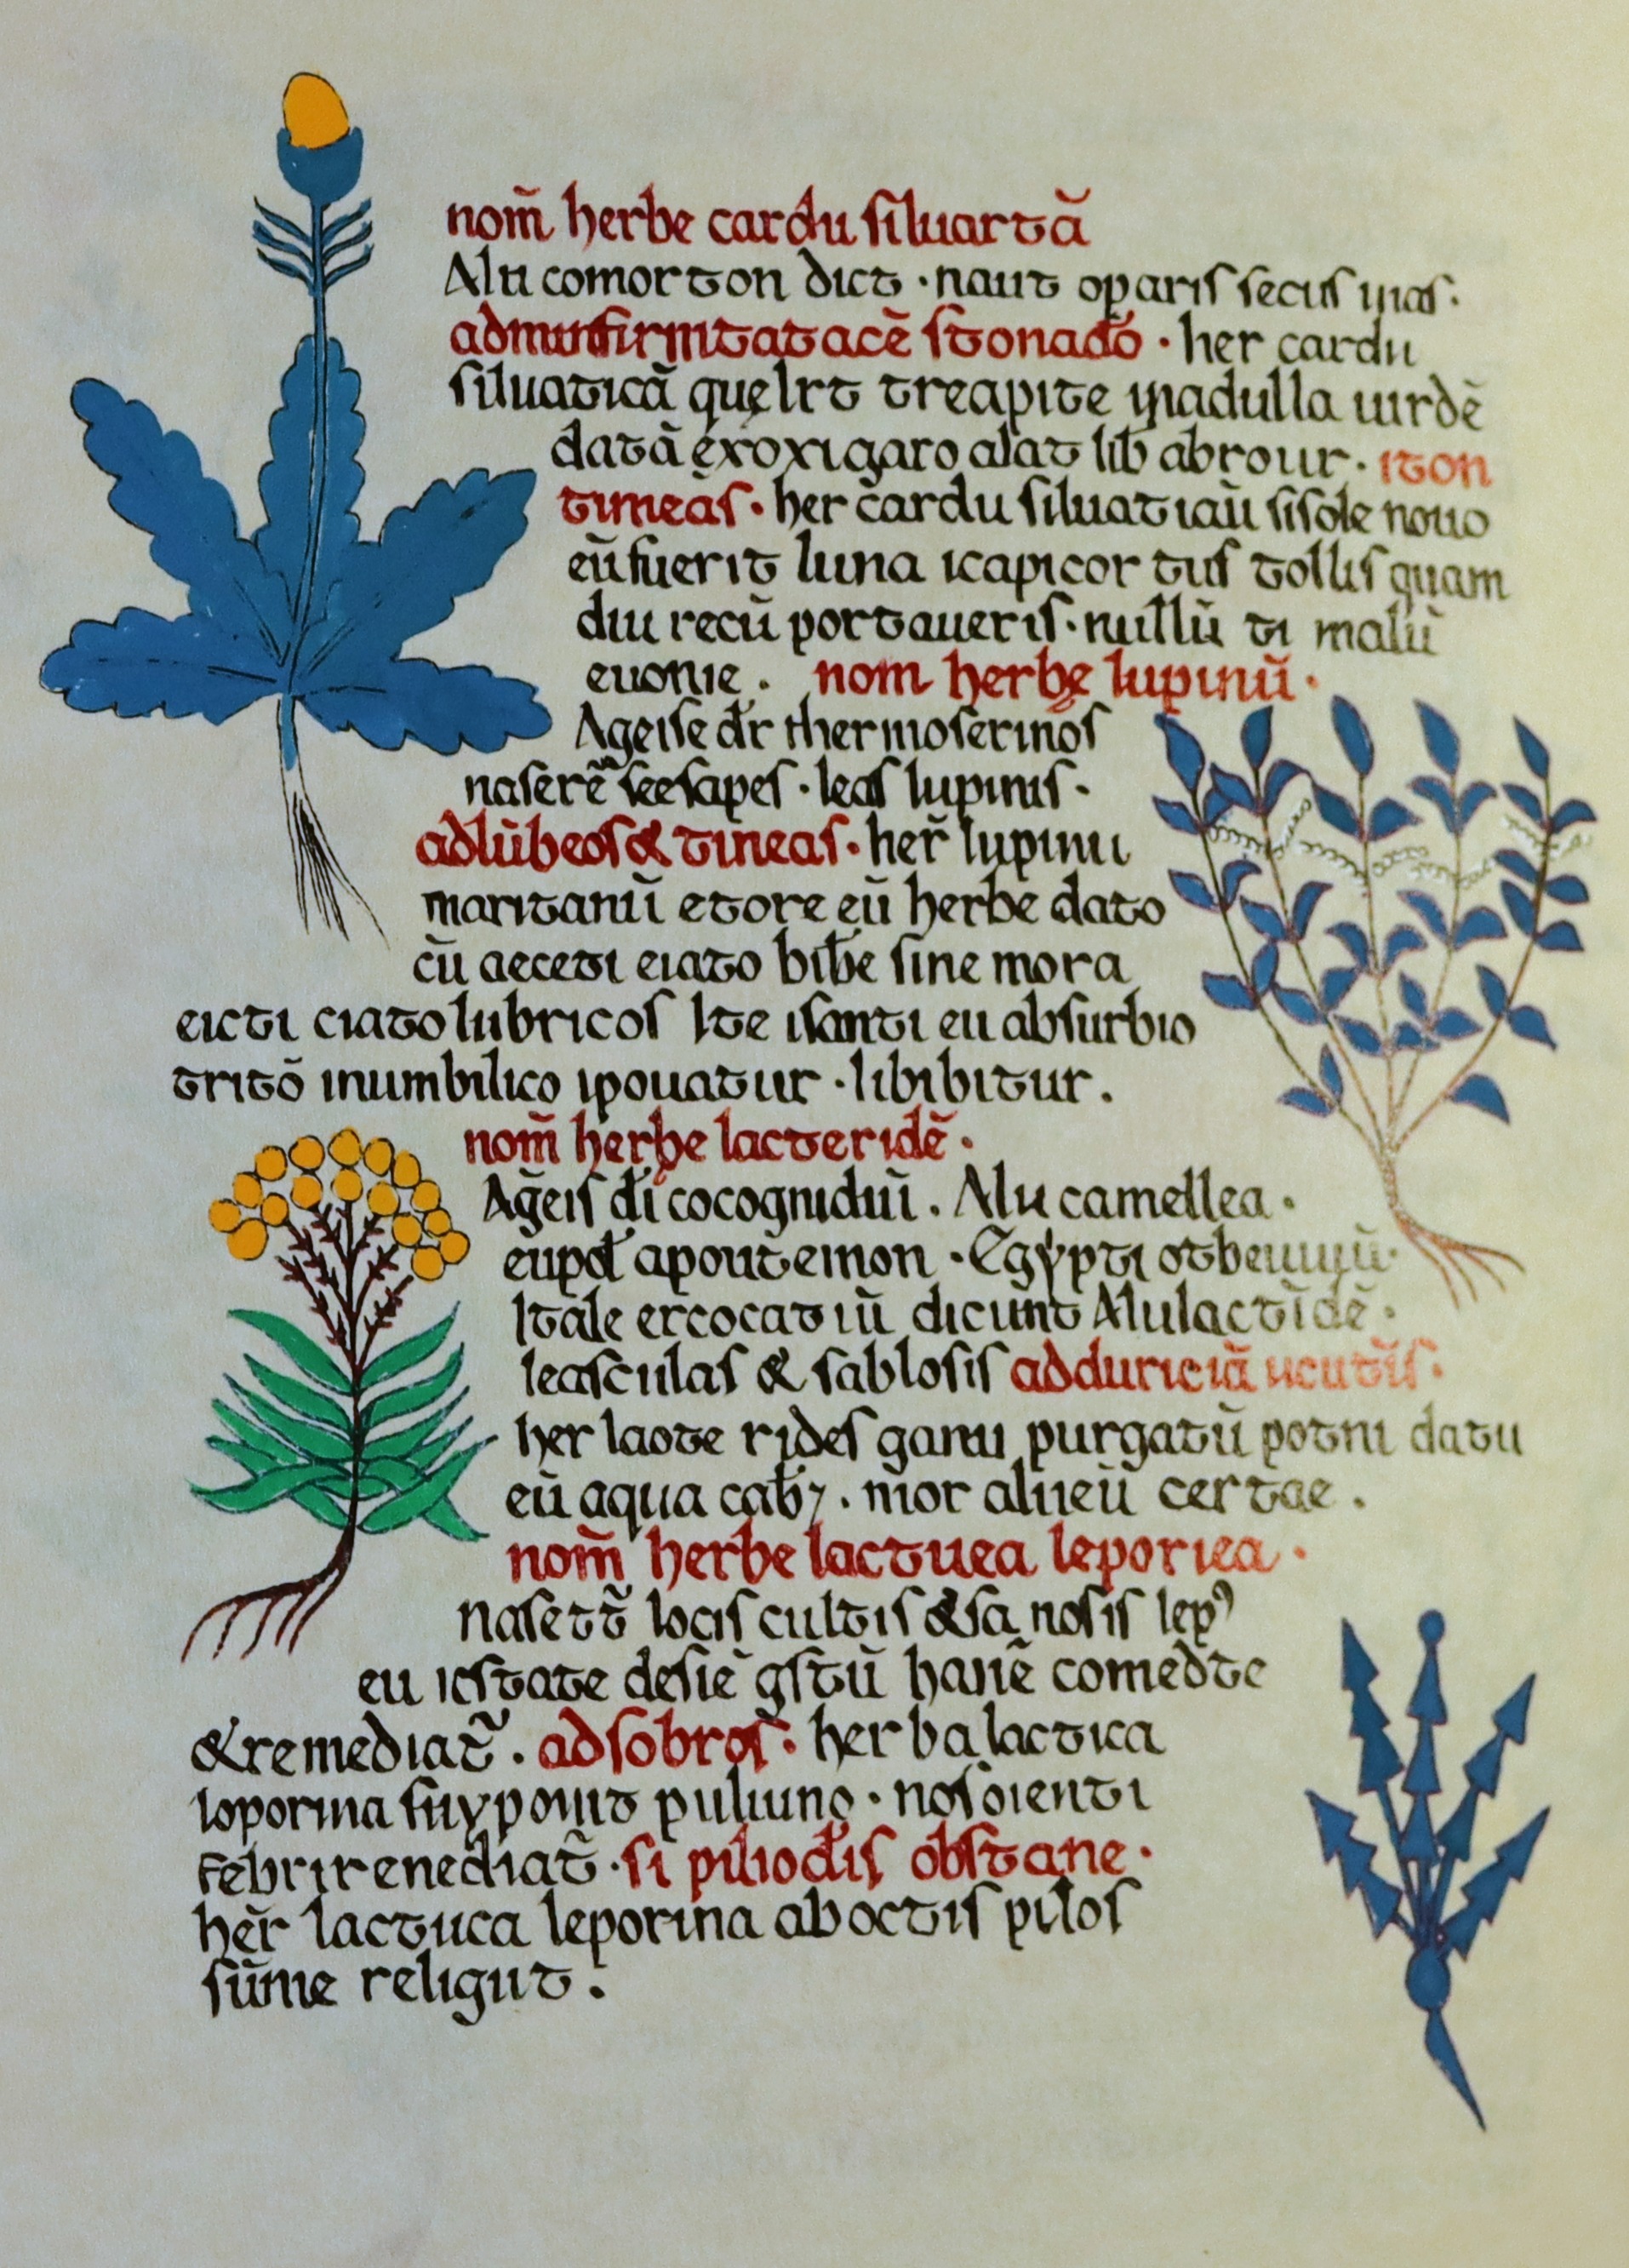 nom̃ herbe cardu siluartā
Alu comorton dict · naut oparis secus uias.
stonado · her cardu
siluaticā que lrt treapite madulla uirdē
datā exoxigaro alat lib abrour. iton
timeās · her cardu siluatiaū sisole nouo
eū fuerit luna icapicor tus tollis quam
diu recū portaueris · nullū ti malū
euonie. nom herbe lupinū ·
Ageise dr̄ thermoserinos
naserē seesapes · leas lupinis ·
ad lūbeos & tineas · her̄ lupinu
maritanū etore eū herbē dato
cū aeceti eiato bibe sine mora
eicti ciato lubricos Ite isanti eu absurbio
tritō inumbilico ipouatur · libibitur.
nom̃ herbe lacteridē ·
Ageis di cocognidiū. Alu camellea ·
eupol apoutemon · Egypti
Itale ercocat iū dicunt Alulactidē ·
leasculas & sablosis adduriciā ucutis ·
her laote rides ganu purgatū potni datu
eū aqua cab⁊. mor alueū certae.
nom̃ herbe lactuea leporiea ·
nasett̃ locis cultis & sa nosis lepꝰ
eu iestate desiē gstū hanē comedte
& remediat̃. ad sobros · herba lactica
loporina suy ponit puliuno · nosoienti
febrirenediat̃ · si piliodis obstane ·
her̄ lactuca leporina ab octis pilos
sūme religut.